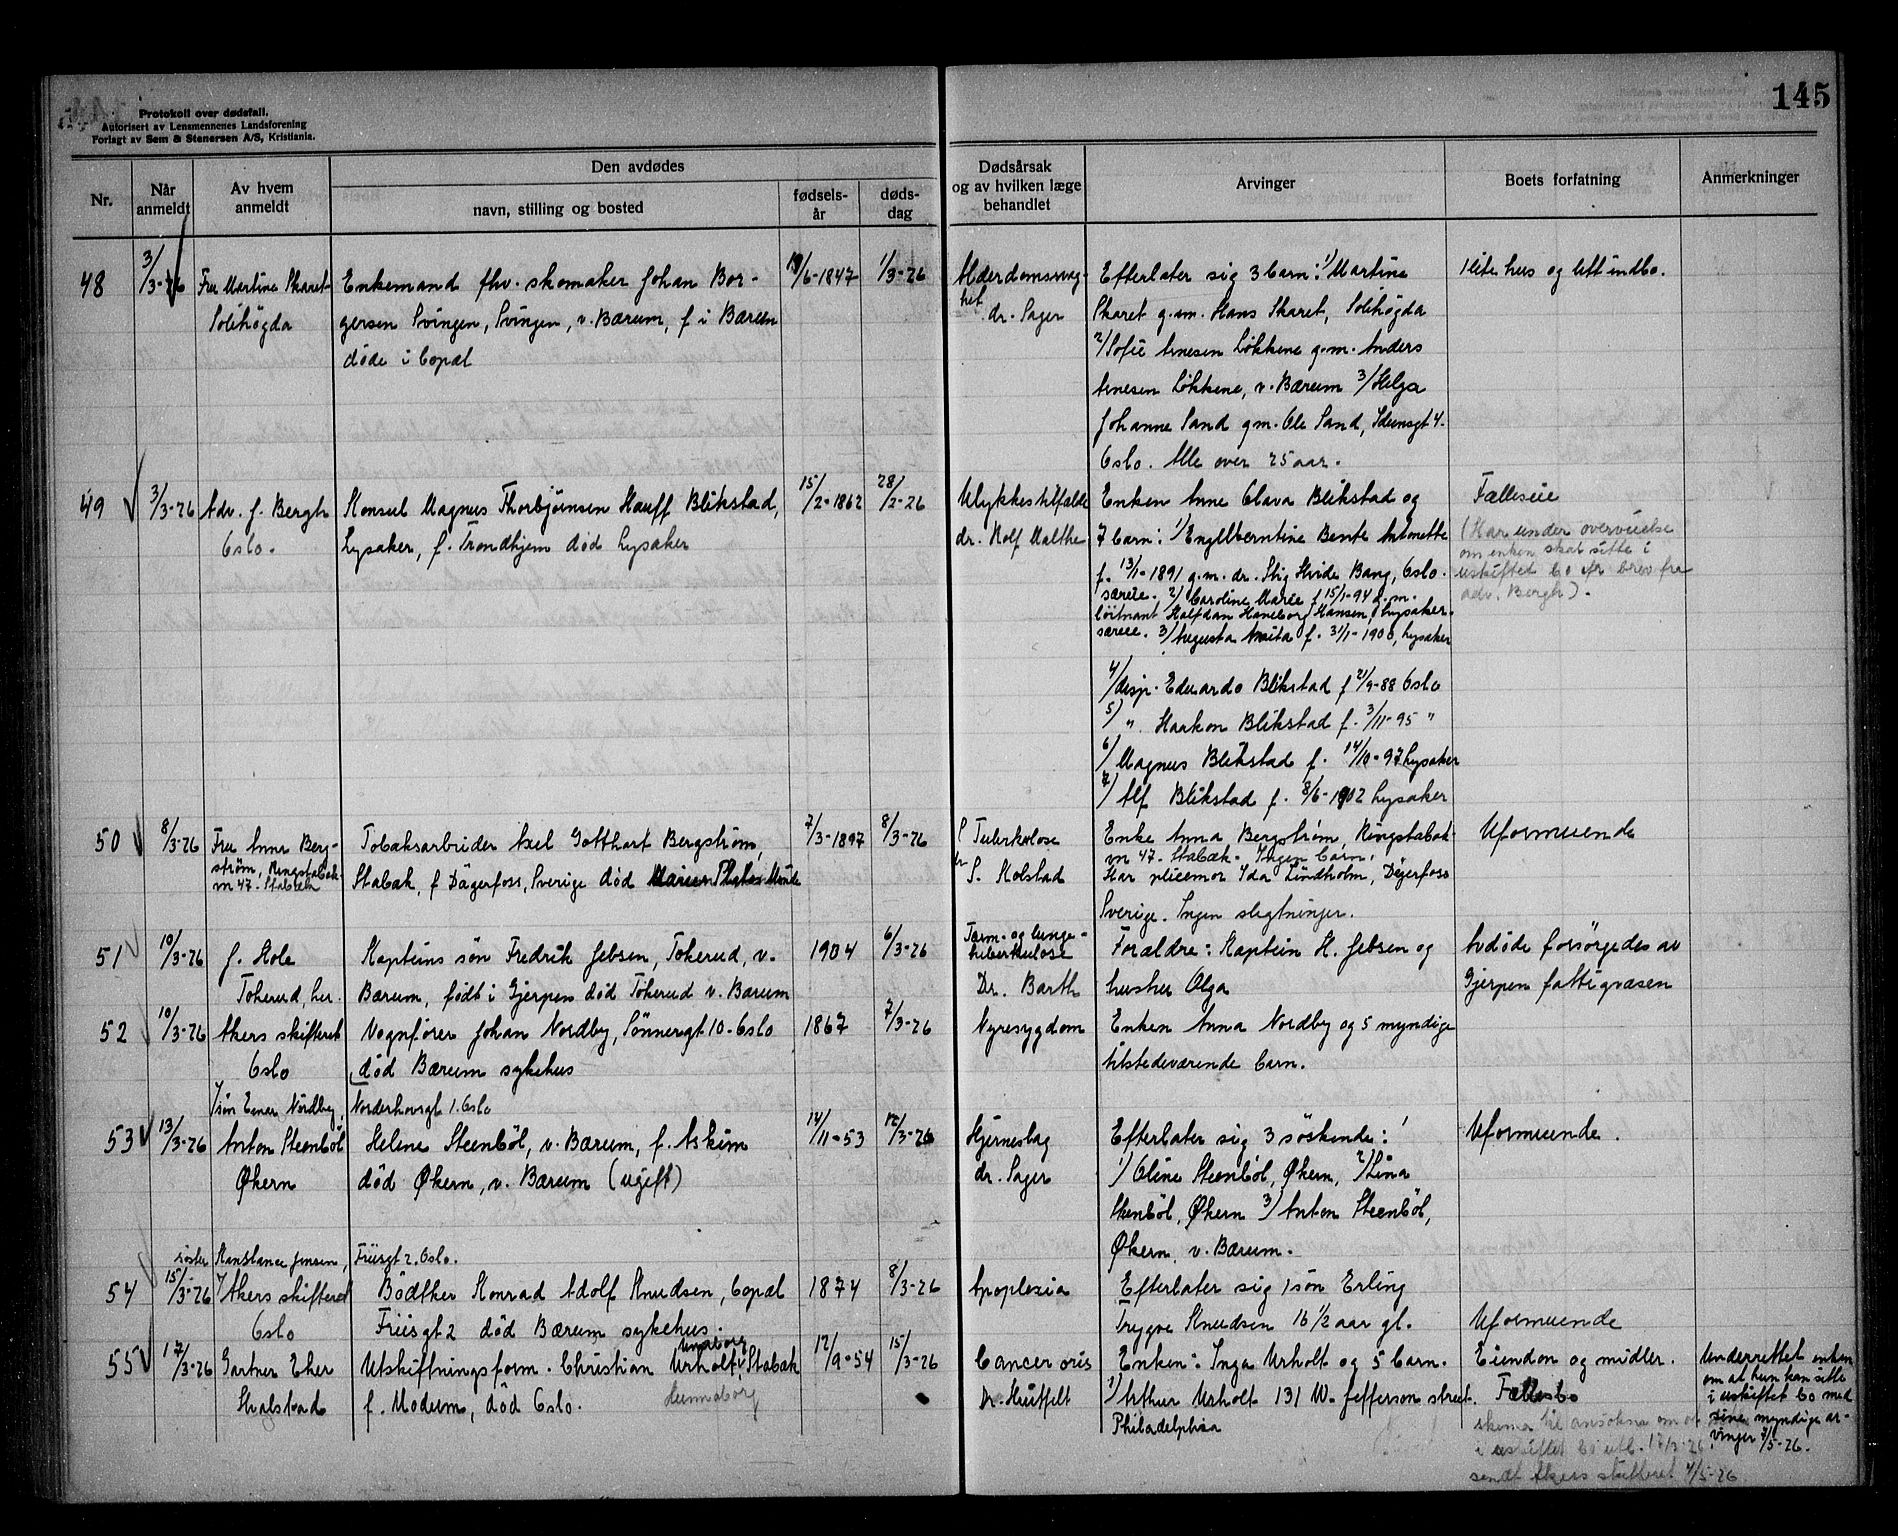 Protokoll over dødsfall.
Autorisert av Lensmennenes Landsforening
Forlagt av Sem & Stenersen A/S, Kristiania.
145
Nr.
Når anmeldt
Av hvem anmeldt
Den avdødes
navn, stilling og bosted
fødsels-år
døds-dag
Dødsårsak og av hvilken læge behandlet
Arvinger
Boets forfatning
Anmerkninger
48
3/3-26
Fru Martine Skaret
Solihögda
Enkemand fhv. skomaker Johan Bor-
gersen Svingen, Svingen, v. Bærum, f i Bærum
døde i Copal
19/6-1847
1/3-26
Alderdomssvag-
het
dr. Sager
Efterlater sig 3 barn: 1/ Martine
Skaret g.m. Hans Skaret, Solihögda
2/ Sofie Arnesen Løkkene g.m. Anders
Arnesen Løkkene, v. Bærum 3/ Helga
Johanne Sand g.m. Ole Sand, Idunsgt 4.
Oslo. Alle over 25 aar.
1 lite hus og litt indbo.
49
3/3-26
Adv. J. Bergh
Oslo.
Konsul Magnus Thorbjørnsen Hauff Blikstad,
Lysaker, f. Trondhjem død Lysaker
15/2-1862
28/2-26
Ulykkestilfælde
dr. Rolf Malthe
Enken Anne Olava Blikstad og
7 barn: 1/ Engelberntine Bente Antonette
f. 13/1-1891 g.m. dr. Stig Hvide Bang, Oslo.
særeie. 2/ Caroline Marie f 15/1-94 g.m.
løitnant Halfdan Haneborg Hansen, Lysaker.
særeie. 3/ Augusta Anita f. 31/1-1900, Lysaker
4/ disp. Eduardo Blikstad f 21/9-88 Oslo
5/ " Haakon Blikstad f. 3/11-95 "
6/ Magnus Blikstad f. 14/10-97 Lysaker
7/ Alf Blikstad f. 8/6-1902 Lysaker
Fælleseie
(Har under overveielse
om enken skal sitte i
uskifted bo efr brev fra
adv. Bergh).
50
8/3-26
Fru Anna Berg-
strøm, Ringstabæk-
vn 47. Stabæk
Tobaksarbeider Axel Gotthart Bergstrøm,
Stabæk, f Dägerfoss, Sverige død
7/3-1897
8/3-26
Tuberkulose
S. Kolstad
Enke Anna Bergstrøm, Ringstabæk-
vn 47. Stabæk. Ingen barn.
Har pleiemor Ida Lindholm, Dëgerfoss
Sverige. Ingen slegtninger.
Uformuende
51
10/3-26
J. Hole
Tokerud, her.
Kapteins søn Fredrik Jebsen, Tokerud, v.
Bærum, født i Gjerpen død Tokerud v. Bærum
1904
6/3-26
Tarm- og lunge-
tuberkulose
Dr. Barth
Forældre: Kaptein H. Jebsen og
hustru Olga
Avdøde forsörgedes av
Gjerpen fattigvæsen
52
10/3-26
Akers skifteret
Oslo
1/ søn Einar Nordby, Norderhovsgt 1. Oslo
Vognfører Johan Nordby, Sönnergt 10. Oslo
død Bærum sykehus
1867
7/3-26
Nyresygdom
Enken Anna Nordby og 5 myndige
tilstedeværende barn.
53
13/3-26
Anton Steenböl
Økern
Helene Steenböl, v. Bærum, f. Askim
död Økern, v. Bærum (ugift)
14/11-53
12/3-26
Hjerneslag
dr. Sager
Efterlater sig 3 söskende:
1/ Oline Steenböl, Økern, 2/ Lina
Stenböl, Økern 3/ Anton Steenböl,
Økern v. Bærum.
Uformuende.
54
söster Konstance Jensen, Friisgt 2. Oslo.
15/3-26
Akers skifteret
Oslo
Bödtker Konrad Adolf Knudsen, Copal
Friisgt 2 død Bærum sykehus.
1874
8/3-26
Apoplexia
Efterlater sig 1 sön Erling
Trygve Knudsen 16 1/2 aar gl.
Uformuende
55
17/3-26
Gartner Eker
Hvalstad
Utskiftningsform. Christian Urholt, Stabæk
f. Modum, død Oslo.
12/9-54
15/3-26
Cancer oris
Dr. Huitfelt
Enken: Inga Urholt og 5 barn.
1/ Arthur Urholt 131 W. Jefferson street.
Philadelphia
Eiendom og midler.
Fællesbo
skema til ansökning om at
i uskiftet bo utl. 17/3-26.
sendt Akers skifteret 4/5-26
Underrettet enken
om at hun kan sitte
i uskiftet bo med
sine myndige ar-
vinger 7/5-26.